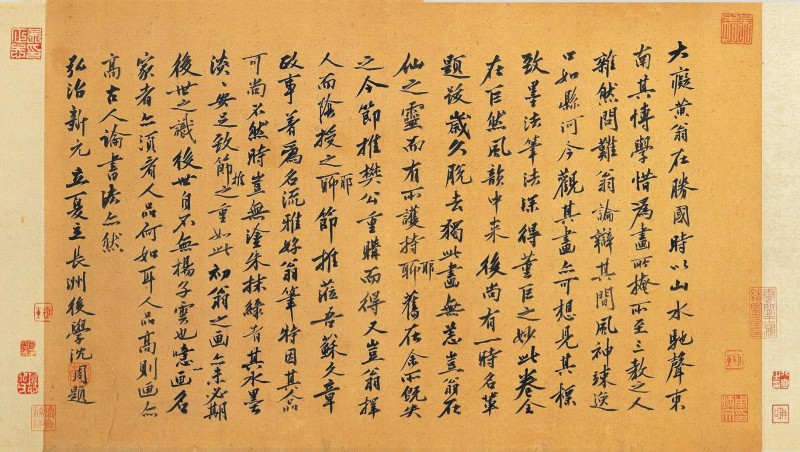 大癡黃翁在勝國時以山水馳聲東
南其博學惜為畫所掩所至三教之人
雜然問難翁論辯其間風神竦逸
口如縣河今觀其畫亦可想見其標
致墨法筆法深得董巨之妙此卷全
在巨然風韻中来後尚有一時名輩
題跋歲久脫去獨此畫無恙豈翁在
仙之靈而有所護持耶舊在余所既失
之今節推樊公重購而得又豈翁擇
人而陰授之耶節推蒞吾蘇文章
政事著為名流雅好翁筆特因其人品
可尚不然時豈無塗朱抹綠者其水墨
淡淡安足致節推之重如此初翁之画亦未必期
後世之識後世自不無揚子雲也噫以画名
家者亦須看人品何如耳人品高則画亦
高古人論書法亦然
弘治新元立夏立長洲後學沈周題